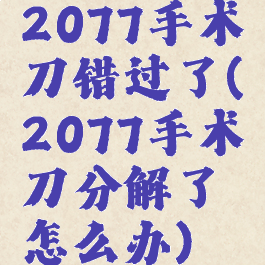 2077手术
刀错过了(
2077手术
刀分解了
怎么办)